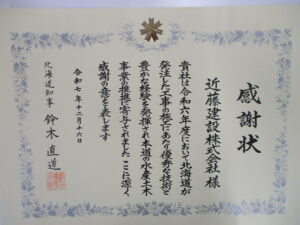 感謝状
近藤建設株式会社 様
貴社は令和六年度において北海道が
発注した工事の施工にあたり優秀な技術と
豊かな経験を発揮され本道の水産土木
事業の推進に寄与されました ここに深く
感謝の意を表します
令和七年十二月十六日
北海道知事 鈴木直道